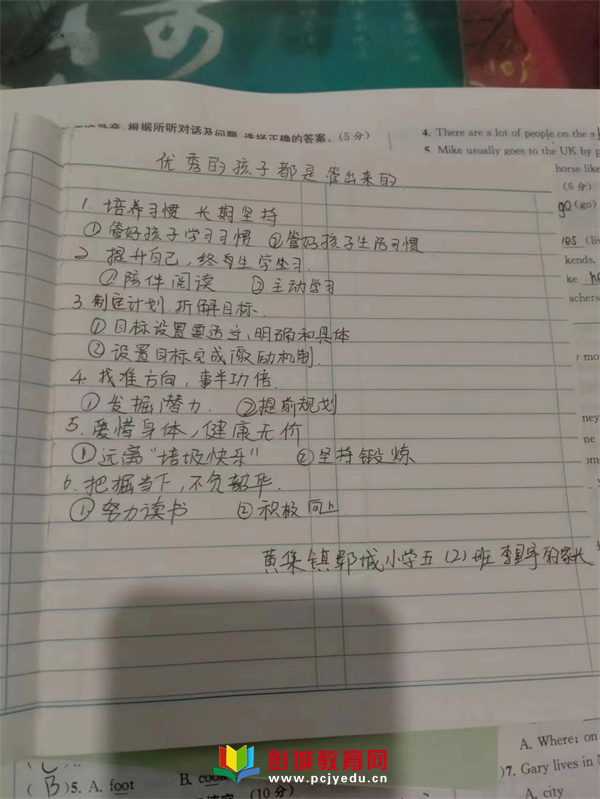 根据所听对话及问题,选择正确的答案。(5分)
4. There are a lot of people on the
5. Mike usually goes to the UK by
horse like
(6分)
go (go)
kends.
ke
achers
优秀的孩子都是管出来的
1. 培养习惯 长期坚持
①管好孩子学习习惯 ②管好孩子生活习惯
2. 提升自己,终身学习.
①陪伴阅读 ②主动学习
3. 制定计划 折解目标.
①目标设置要适当,明确和具体
②设置目标完成激励机制.
4. 找准方向,事半功倍.
①发掘潜力. ②提前规划
5. 爱惜身体,健康无价
①远离“垃圾快乐” ②坚持锻炼
6. 把握当下,不负韶华.
①努力读书 ②积极向上
黄集镇郓城小学五(2)班 李 的家长
A. Where; on
7. Gary lives in
A. city
(B)5. A. foot B. cook
(10分)
彭城教育网
www.pcjyedu.cn